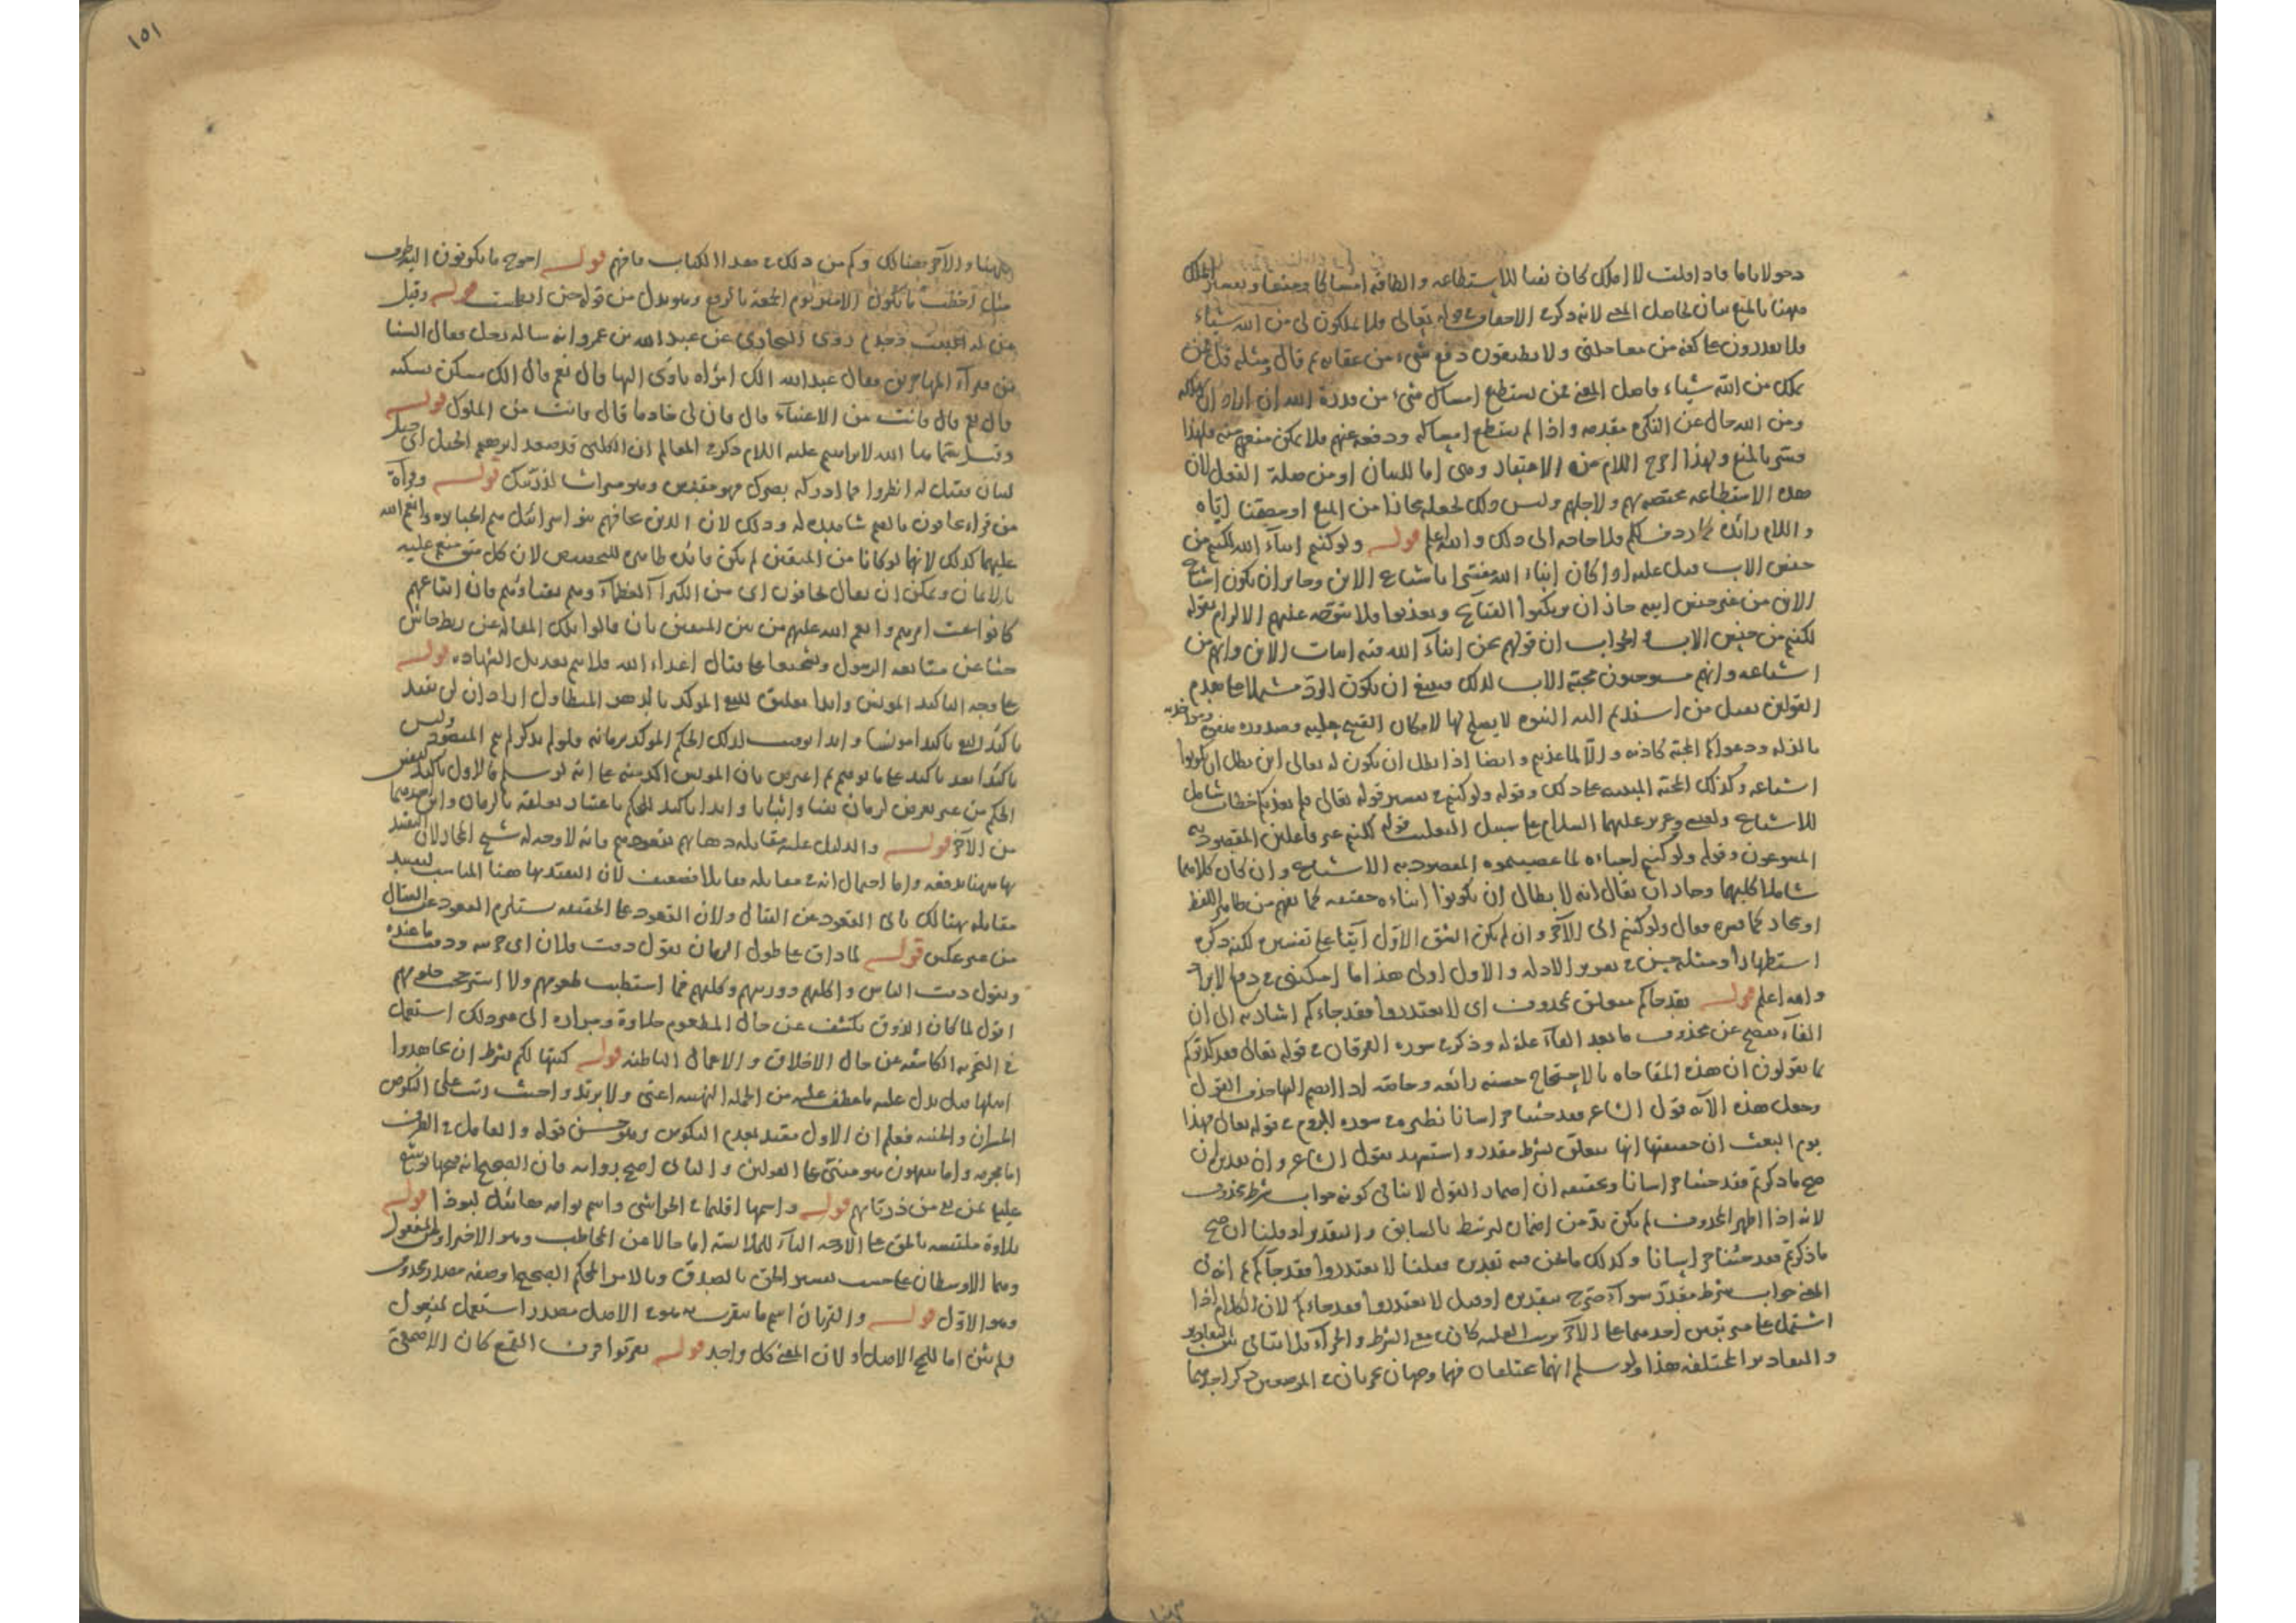 دخولا تاما فاذا قلت لا املك كان نفيا للاستطاعة والطاقة
ههنا بالمنع بيان لحاصل المعنى لانه ذكر في الاحقاف في قوله تعالى فلا تملكون لي من الله شيئا
فلا تقدرون على كفه من معاجلتي ولا تطيقون دفع شيء من عقابه ثم قال ومثله قل فمن
يملك من الله شيئا وحاصل المعنى فمن يستطيع امساك شيء من قدرة الله ان اراد ان يهلك
ومن الله حال عن النكرة مقدمة واذا لم يستطع امساكه ودفعه عنهم فلا يمكن منعهم منه فلهذا
فسر بالمنع وبهذا خرج اللام عن الاعتياد وهي اما للبيان او من صلة الفعل لان
هذه الاستطاعة مختصة بهم ولاجلهم وليس ذلك لجعله مجازا من المنع
واللام زائدة ردف لكم فلا حاجة الى ذلك والله اعلم قوله ولو كنتم ابناء الله لكنتم من
جنس الاب قيل عليه اذا كان ابناء الله مفسرا باشياع الابن وجاز ان يكون اشياع
الابن من غير جنس ابيه جاز ان يرتكبوا القبائح ويعذبوا فلا يتوجه عليهم الالزام بقوله
لكنتم من جنس الاب والجواب ان قولهم نحن ابناء الله فيه اثبات الابن وانهم من
اشياعه وانهم مستوجبون محبة الاب لذلك فينبغي ان يكون الرد مشتملا على هدم
القولين
بالزلة ودعواكم المحبة كاذبة والا لما عذبتم وايضا اذا بطل ان يكون له تعالى ابن بطل ان يكونوا
اشياعه وكذلك المحبة المبنية على ذلك وقوله ولو كنتم في تفسير قوله تعالى فلم يعذبكم خطاب شامل
للاشياع ولعيسى وعزير عليهما السلام على سبيل التغليب قوله لكنتم غير فاعلين المقصود به
المدعوون وقوله ولو كنتم احباءه لما عصيتموه المقصود به الاشياع وان كان كلاهما
شاملا كليهما وجاز ان يقال انه لابطال ان يكونوا ابناءه حقيقة كما يفهم من ظاهر اللفظ
او مجازا كما فسره فقال ولو كنتم الى الآخر وان لم يكن الشق الاول آتيا على تفسيره لكنه ذكره
استطهارا ومثله حسن في تقرير الادلة والاول اولى هذا ما امكنني في دفع الايراد
والله اعلم قوله فقد جاءكم متعلق بمحذوف اي لا تعتذروا فقد جاءكم اشار به الى ان
الفاء تفصح عن محذوف ما بعد الفاء علة له وذكر في سورة الفرقان في قوله تعالى فقد كذبوكم
بما تقولون ان هذه المفاجاة بالاحتجاج حسنة رائعة وخاصة اذا انضم اليها حذف القول
وجعل هذه الآية وقول الشاعر فقد جئنا خراسانا نظيره وفي سورة الروم في قوله تعالى فهذا
يوم البعث ان حقيقتها انها متعلق بشرط مقدر واستشهد بقول الشاعر وان تقديره ان
صح ما ذكرتم فقد جئنا خراسانا وتحقيقه ان اضمار القول لا ينافي كونه جواب شرط محذوف
لانه اذا ظهر المحذوف لم يكن بد من اضمار ليرتبط بالسابق والتقدير او قلنا ان صح
ما ذكرتم فقد جئنا خراسانا وكذلك ما نحن فيه تقديره فقلنا لا تعتذروا فقد جاءكم ثم انه في
المعنى جواب شرط مقدر سواء صرح بتقديره او قيل لا تعتذروا فقد جاءكم لان الكلام اذا
اشتمل على
والتقادير المختلفة هذا ولو سلم انهما مختلفان فهما وجهان يجريان في الموضعين ذكر احدهما
ههنا والآخر هنالك وكم من ذلك في هذا الكتاب فافهم قوله احوج ما يكونون اليه
مثل اخطب ما يكون الامير يوم الجمعة بالرفع وهو بدل من قوله حين انقلبت قوله وقيل
من له بيت وخدم روى البخاري عن عبد الله بن عمرو انه سأله رجل فقال السنا
من فقراء المهاجرين فقال عبد الله الك امرأة تأوي اليها قال نعم قال الك مسكن تسكنه
قال نعم قال فانت من الاغنياء قال فان لي خادما قال فانت من الملوك قوله
وقيل سماها الله لابراهيم عليه السلام ذكر في المعالم ان الكلبي قال صعد ابراهيم الجبل اي جبل
لبنان فقيل له انظر فما ادركه بصرك فهو مقدس وهو ميراث لذريتك قوله وقراءة
من قرأ يخافون بالضم شاهدة له وذلك لان الذين يخافهم بنو اسرائيل هم الجبابرة وانعم الله
عليهما كذلك لانهما لو كانا من المتقين لم يكن فائدة ظاهرة للتخصيص لان كل متق منعم عليه
بالايمان ويمكن ان يقال يخافون اي من الكبراء العظماء وهم نقباؤهم فان اتباعهم
كانوا تحت امرهم وانعم الله عليهم من بين المتقين بان قالوا تلك المقالة عن ربط جاش
حثا على متابعة الرسول وتشجيعا على قتال اعداء الله فلا يتم تعديل الشهادة قوله
على وجه التأكيد المؤيس وابدا تعليق للنفي المؤكد بالدهر المتطاول اراد ان لن تفيد
تأكيد النفي تأكيدا مؤيسا وابدا توقيت لذلك الحكم المؤكد بزمانه فلو لم يذكر لم يتم المقصود وليس
تأكيدا بعد تأكيد على ما توهم ثم اعترض بان المؤيس اكد منه على انه لو سلم فالاول تأكيد لنفس
الحكم من غير تعرض لزمان نفيا واثباتا وابدا تأكيد للحكم باعتبار تعلقه بالزمان واين احدهما
من الآخر قوله والدليل عليه مقابلة ذهابهم بقعودهم فانه لا وجه له شيء المجاز لان التقييد
بها ههنا يدفعه واما احتمال انه في مقابلة فقاتلا فضعيف لان التقييد بها هنا المناسب لتقييد
مقابله هنالك يأبى القعود عن القتال ولان القعود على الحقيقة يستلزم القعود عن القتال
من غير عكس قوله لما ذاق على طول الزمان تقول ذقت فلانا اي جربته وذقت ما عنده
وتقول ذقت الناس واكلتهم ووزنتهم وكلتهم فما استطبت طعومهم ولا استرجحت حلومهم
اقول لما كان الذوق يكشف عن حال المطعوم حلاوة ومرارة الى غير ذلك استعمل
في التجربة الكاشفة عن حال الاخلاق والاعمال الباطنة قوله كتبها لكم بشرط ان تجاهدوا
اهلها قيل يدل عليه ما عطف عليه من الجملة النهيية اعني ولا ترتدوا حيث رتب على النكوص
الخسران والخيبة فعلم ان الاول مقيد بعدم النكوص وهو حسن قوله والعامل في الظرف
اما محرمة واما يتيهون هو مبني على القولين والثاني اصح رواية فان الصحيح انه فتحها يوشع
عليه من بقي من ذرياتهم قوله واسمها اقليما في الحواشي واسم توأمة هابيل ليوذا قوله
تلاوة ملتبسة بالحق على الاوجه الباء للملابسة اما حالا عن المخاطب وهو الاخير او عن المفعول
وهما الاوسطان على حسب تفسير الحق بالصدق وبالامر المحكم الصحيح او صفة مصدر محذوف
وهو الاول قوله والقربان اسم ما يتقرب به هو في الاصل مصدر استعمل لمفعول
ولم يثن اما للمح الاصل او لان المعنى كل واحد قوله تقربوا قرف القمع كان الاصمعي
١٥١
ههنا